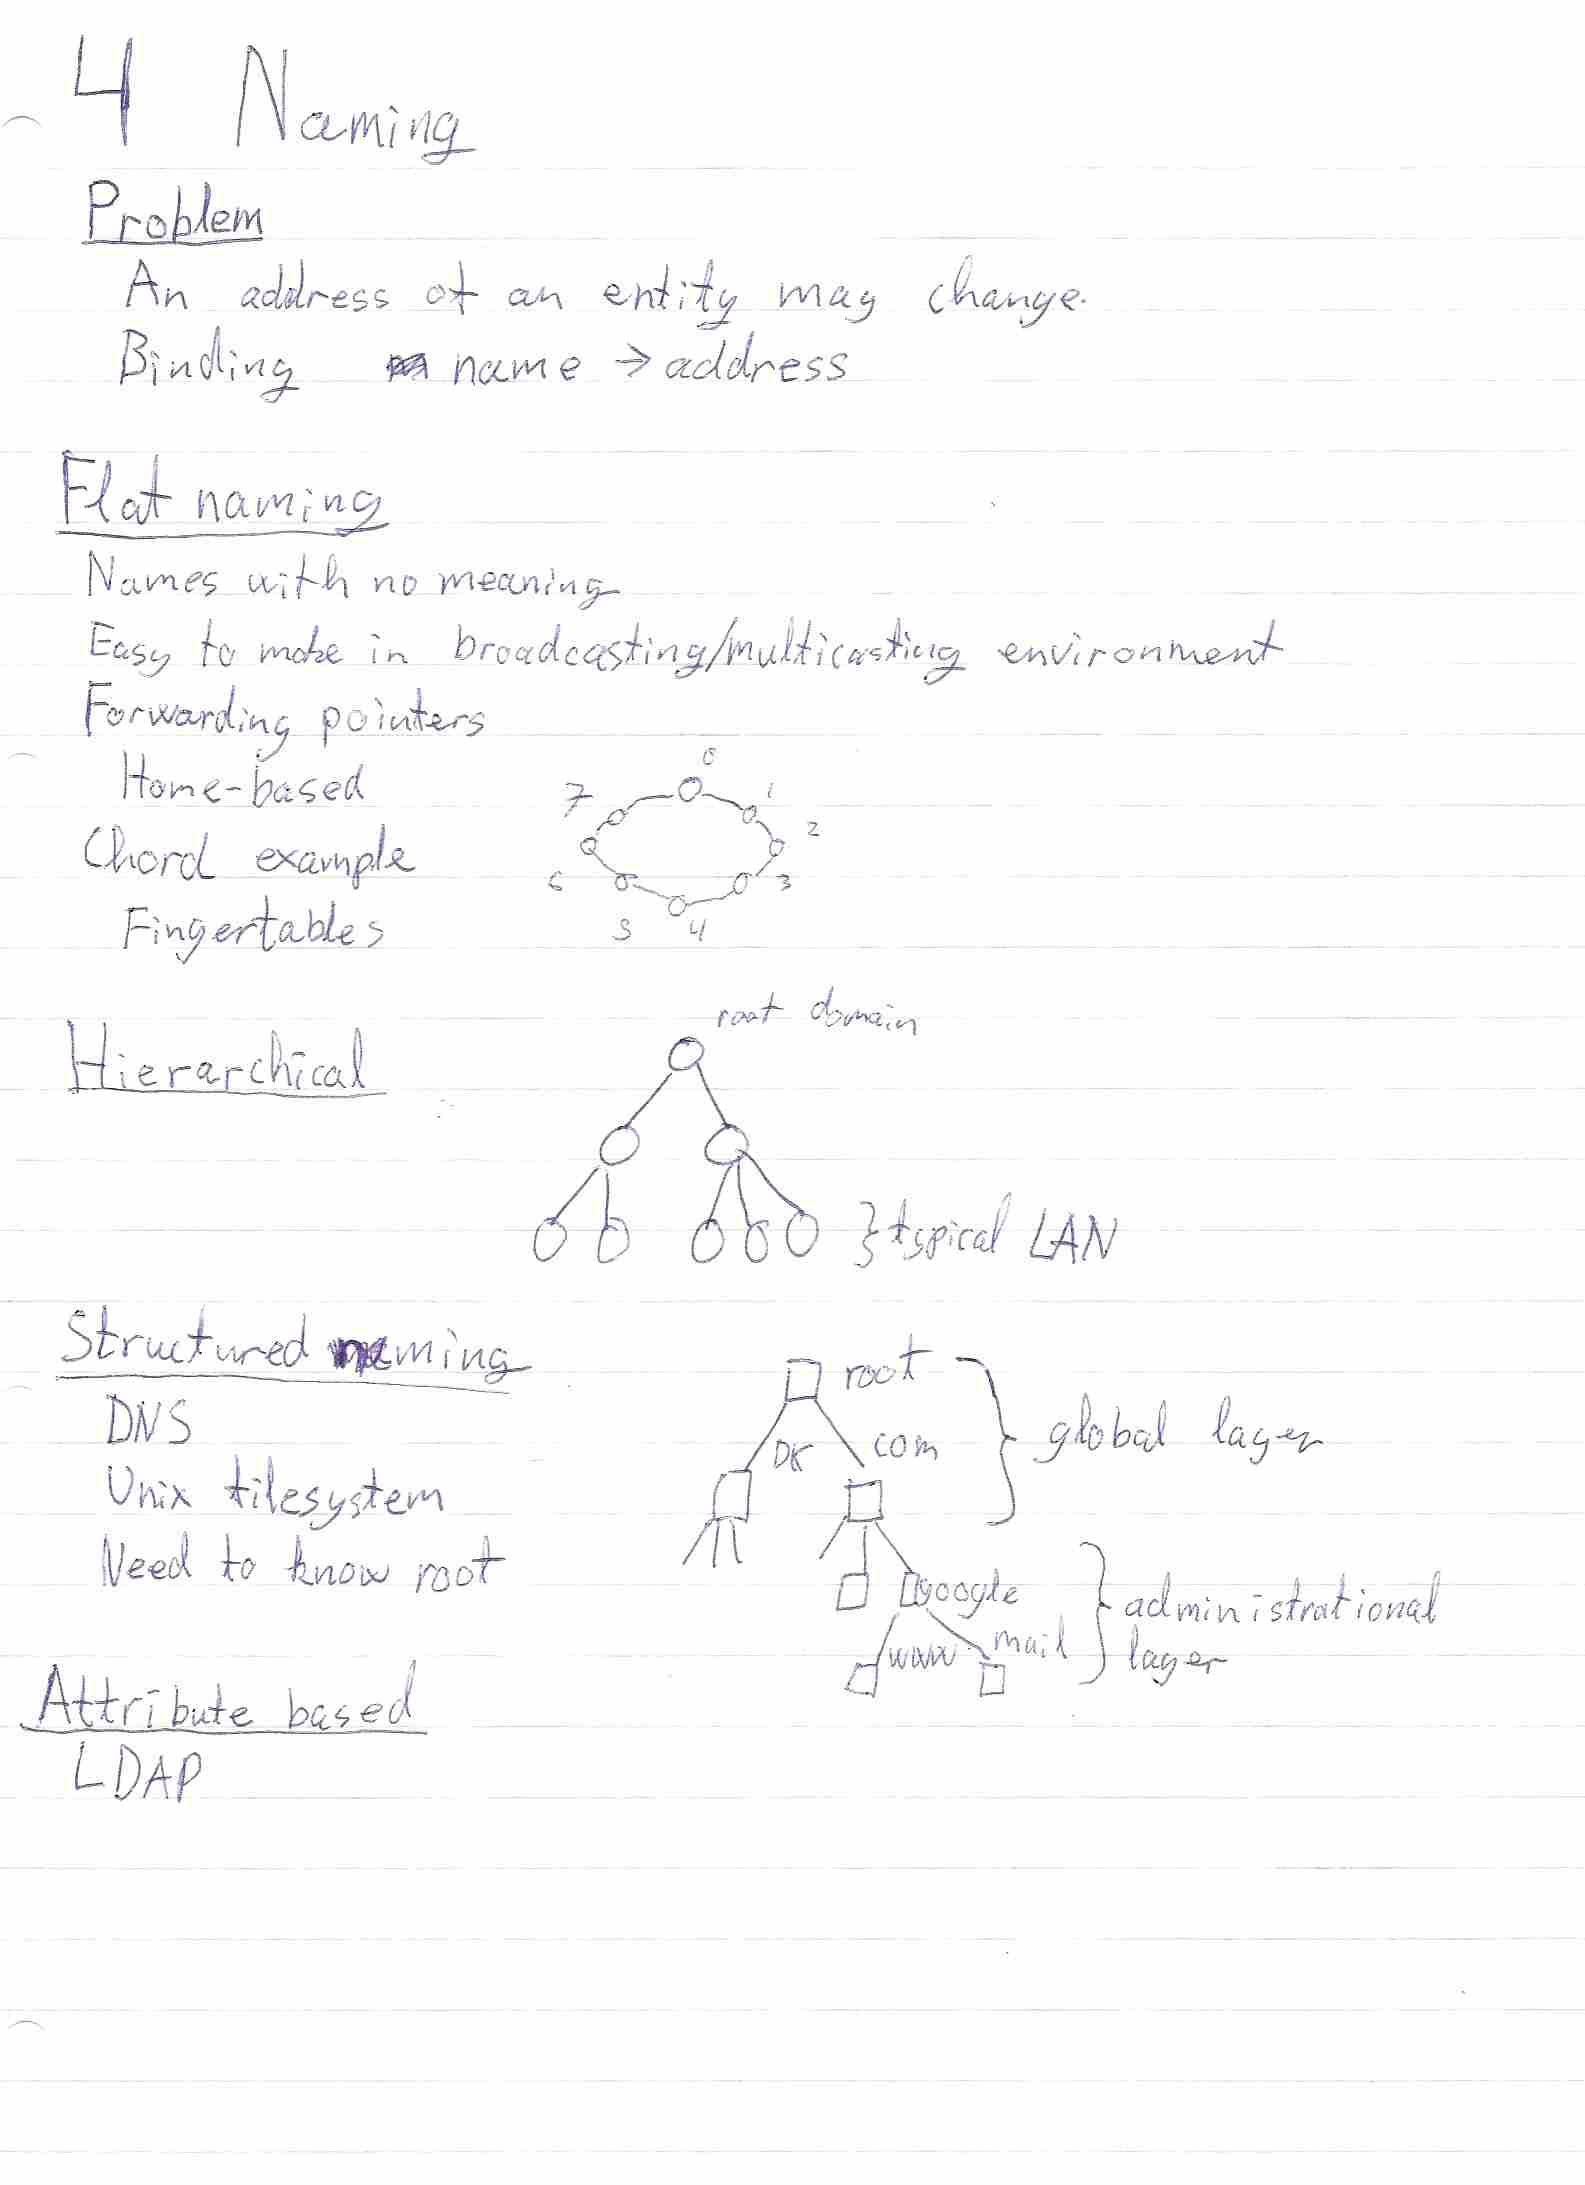 4 Naming
Problem
An address of an entity may change.
Binding name → address
Flat naming
Names with no meaning
Easy to make in broadcasting/multicasting environment
Forwarding pointers
Home-based
Chord example
Fingertables
0
1
2
3
4
5
6
7
root domain
Hierarchical
} typical LAN
Structured naming
DNS
Unix filesystem
Need to know root
root
DK com
} global layer
google
www mail
} administrational
layer
Attribute based
LDAP